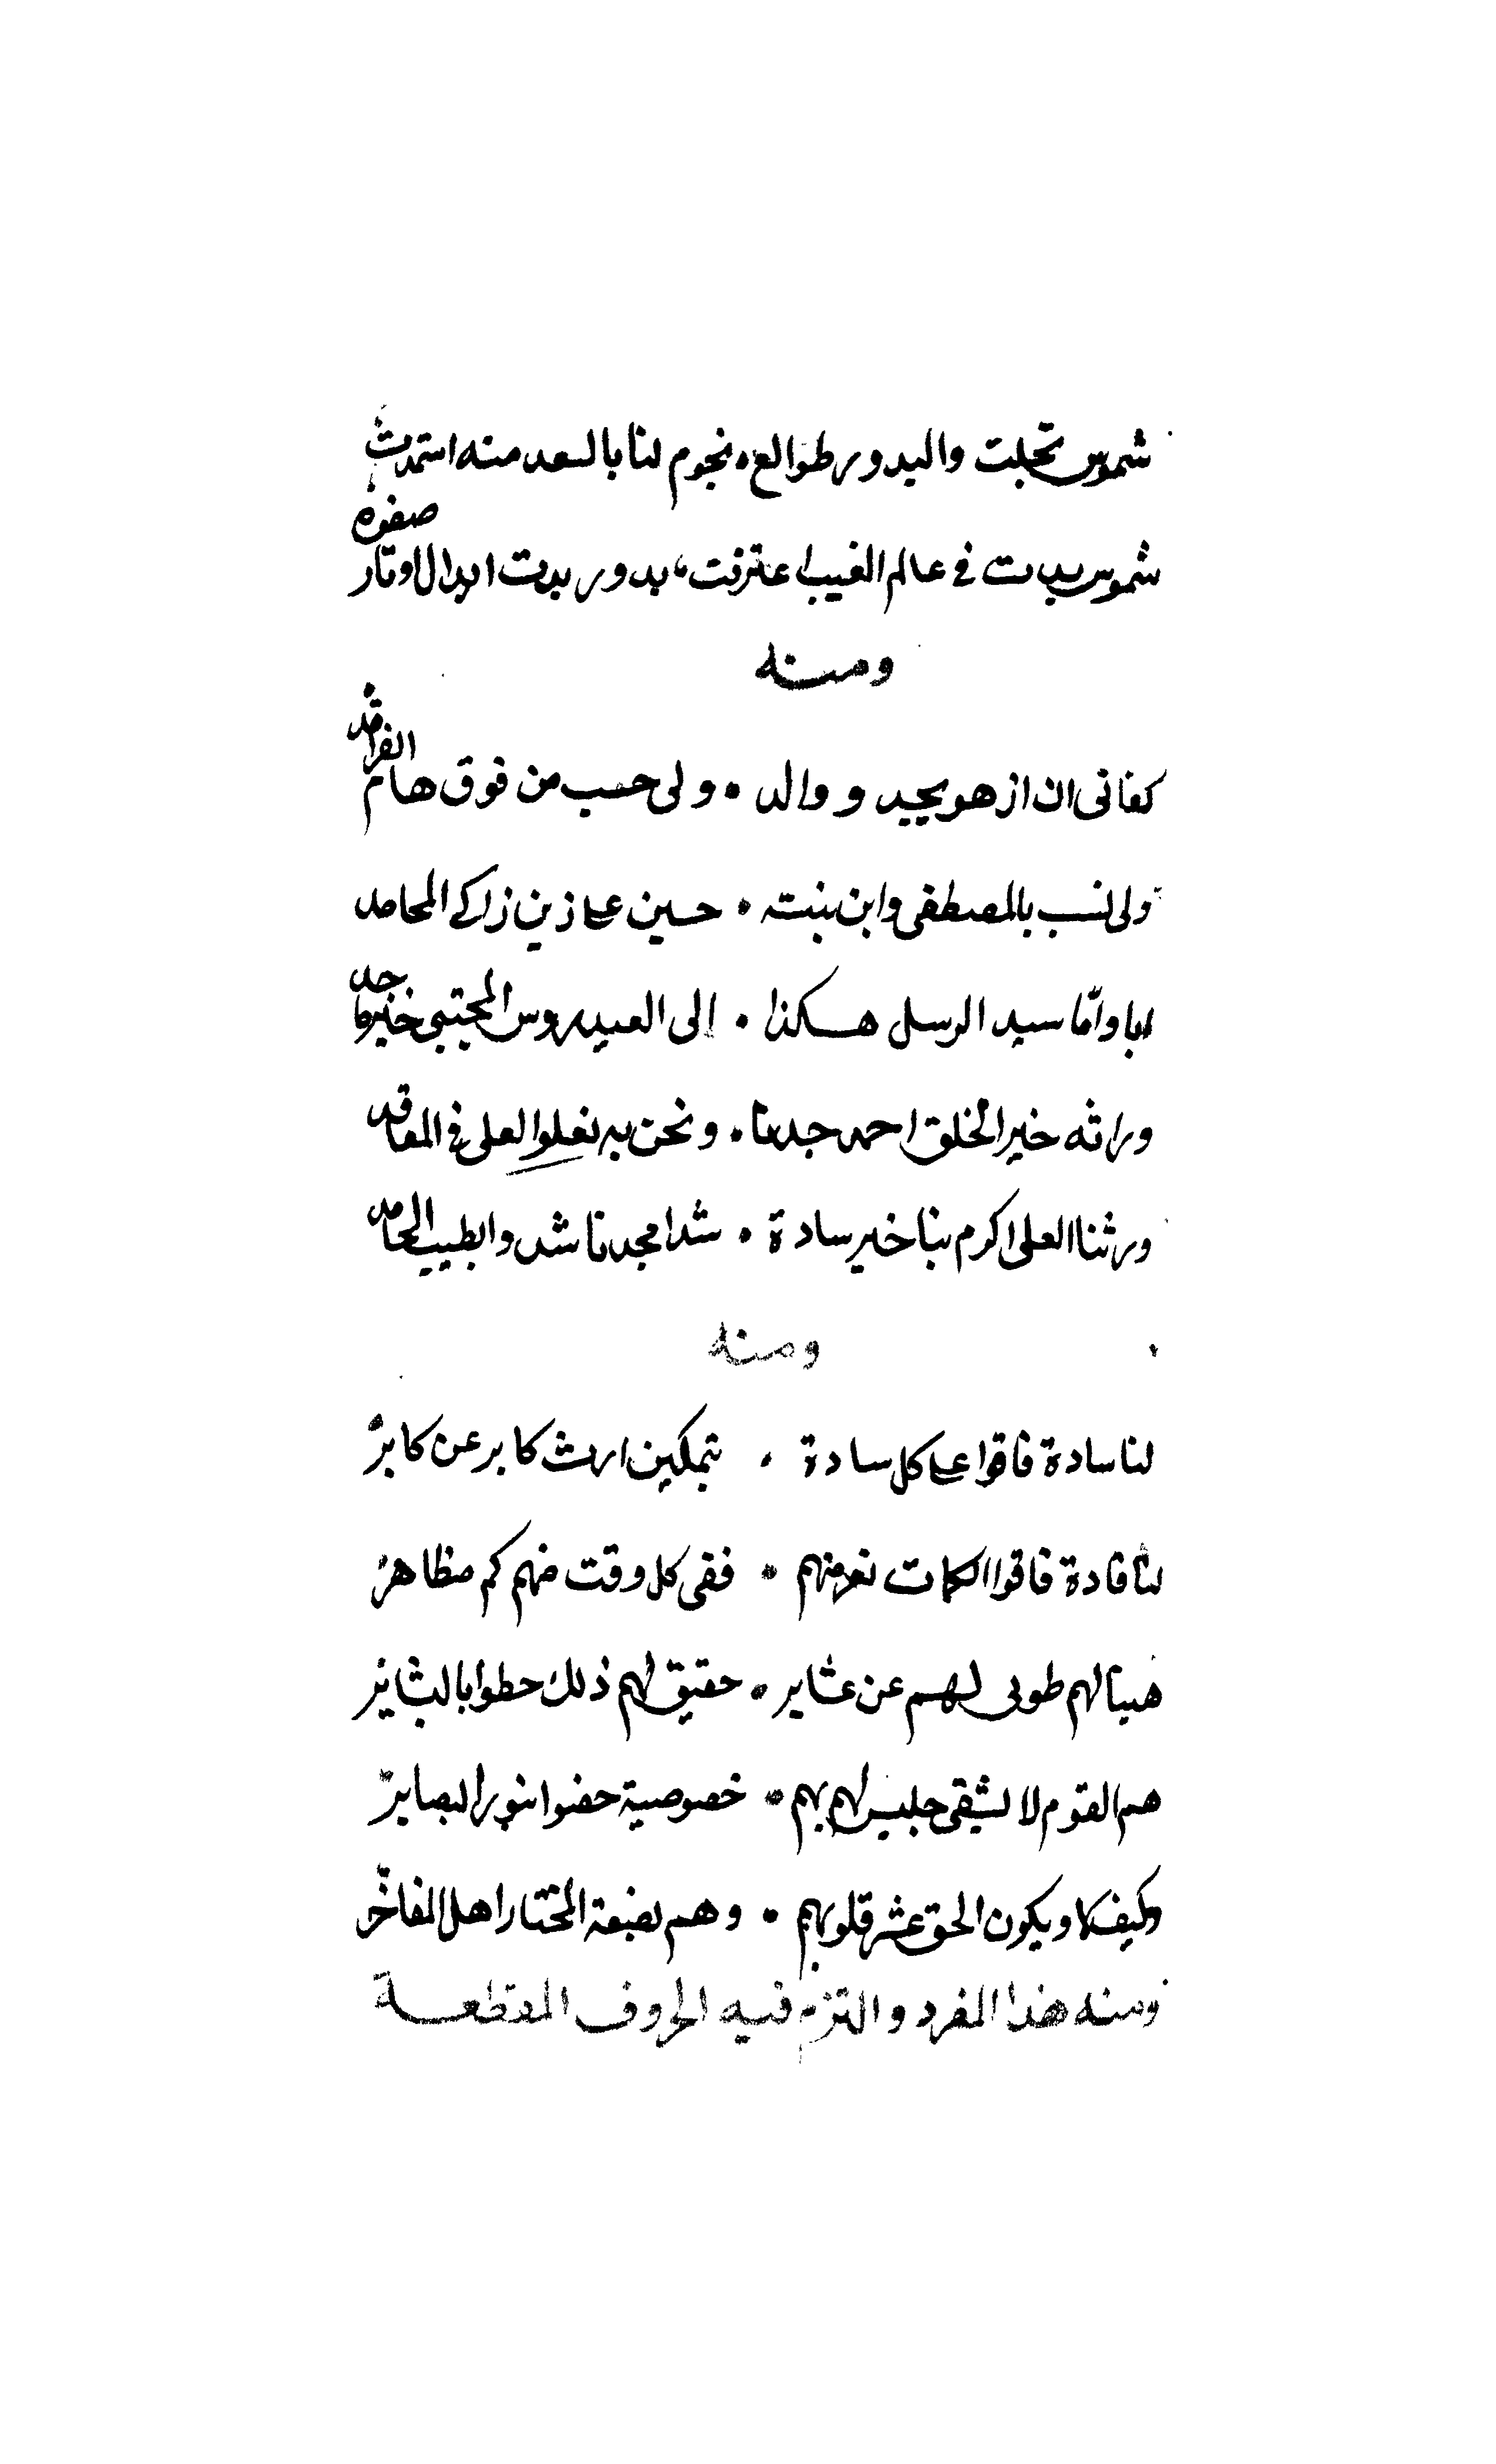 شموس تجلت والبدور طوالع • نجوم لنا بالسعد منه استمدت
شموس بدت في عالم الغيب اعترفت، بدور بدت ابدال اوتار صفوه
ومنه
كفانى ان ازهو بجد ووالد • ولى حسب من فوق هام الفراقد
ولى نسب بالمصطفى وابن بنته • حسين على زين زاكى المحامد
ابا واما سيد الرسل هكذا • إلى العيدروس المجتبى خير ماجد
وراثه خير الخلق احمد جدنا • ونحن به نعلوا لعلى في المقاقد
ورثنا العلى اكرم بنا خير سادة • شذا مجدنا شدوا بطيب المحامد
ومنه
لنا سادة فاقوا على كل سادة • بتمكين ارث كابر عن كابر
لنا قادة فاقوا الكمات بعزمهم • ففى كل وقت منهم كم مظاهر
هنيا لهم طوبى لهم عن عشاير • حقيق لهم ذلك حظوا بالبشاير
هم القوم لا يشقى جليس لهم بهم • خصوصية حفوا بنور البصاير
وكيف لا ويكون الحق عشر قلوبهم • وهم بضعة المختار اهل المفاخر
ومنه هذا المفرد والتزم فيه الحروف المقطعة